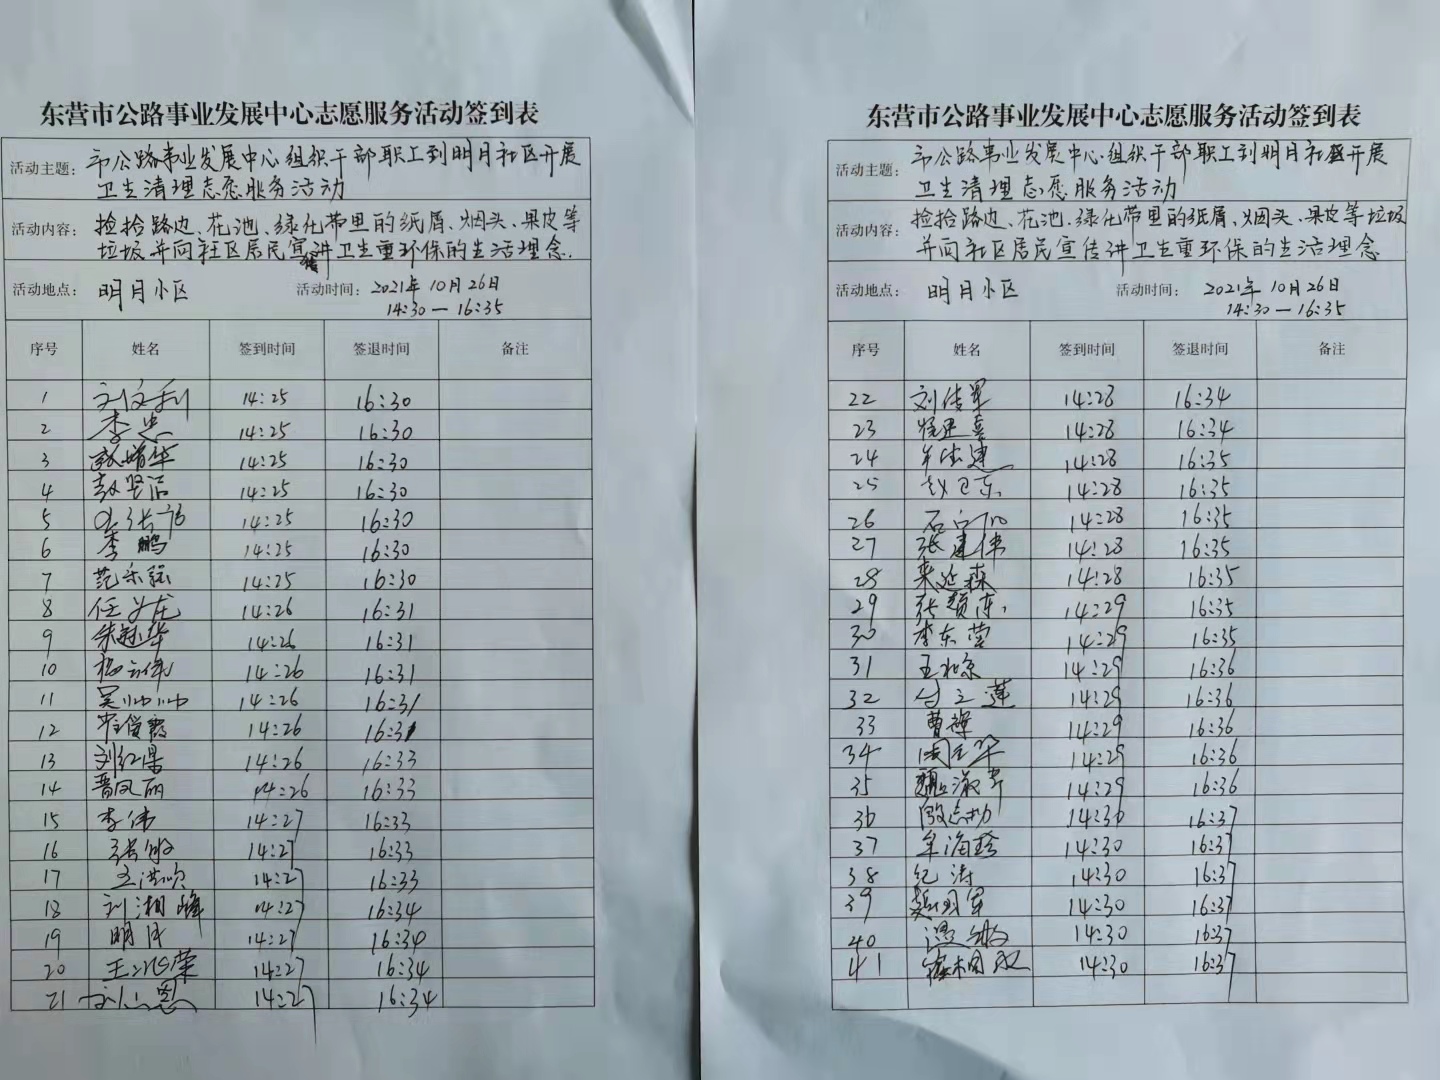 东营市公路事业发展中心志愿服务活动签到表
活动主题: 市公路事业发展中心组织干部职工到明月社区开展
卫生清理志愿服务活动
活动内容: 捡拾路边、花池、绿化带里的纸屑、烟头、果皮等
垃圾并向社区居民宣讲卫生重环保的生活理念.
活动地点: 明月小区 活动时间: 2021年10月26日
14:30—16:35
序号 姓名 签到时间 签退时间 备注
1 14:25 16:30
2 李忠 14:25 16:30
3 14:25 16:30
4 14:25 16:30
5 14:25 16:30
6 李鹏 14:25 16:30
7 14:25 16:30
8 14:26 16:31
9 14:26 16:31
10 14:26 16:31
11 吴帅帅 14:26 16:31
12 14:26 16:31
13 14:26 16:33
14 14:26 16:33
15 李伟 14:27 16:33
16 张敏 14:27 16:33
17 14:27 16:33
18 刘湘峰 14:27 16:34
19 14:27 16:34
20 14:27 16:34
21 14:27 16:34
东营市公路事业发展中心志愿服务活动签到表
活动主题: 市公路事业发展中心组织干部职工到明月社区开展
卫生清理志愿服务活动
活动内容: 捡拾路边、花池、绿化带里的纸屑、烟头、果皮等垃圾
并向社区居民宣传讲卫生重环保的生活理念
活动地点: 明月小区 活动时间: 2021年10月26日
14:30—16:35
序号 姓名 签到时间 签退时间 备注
22 刘传军 14:28 16:34
23 14:28 16:34
24 14:28 16:35
25 赵卫东 14:28 16:35
26 14:28 16:35
27 张建伟 14:28 16:35
28 14:28 16:35
29 14:29 16:35
30 李东营 14:29 16:35
31 王北京 14:29 16:36
32 14:29 16:36
33 14:29 16:36
34 14:29 16:36
35 14:29 16:36
36 14:30 16:37
37 14:30 16:37
38 纪涛 14:30 16:37
39 14:30 16:37
40 14:30 16:37
41 14:30 16:37